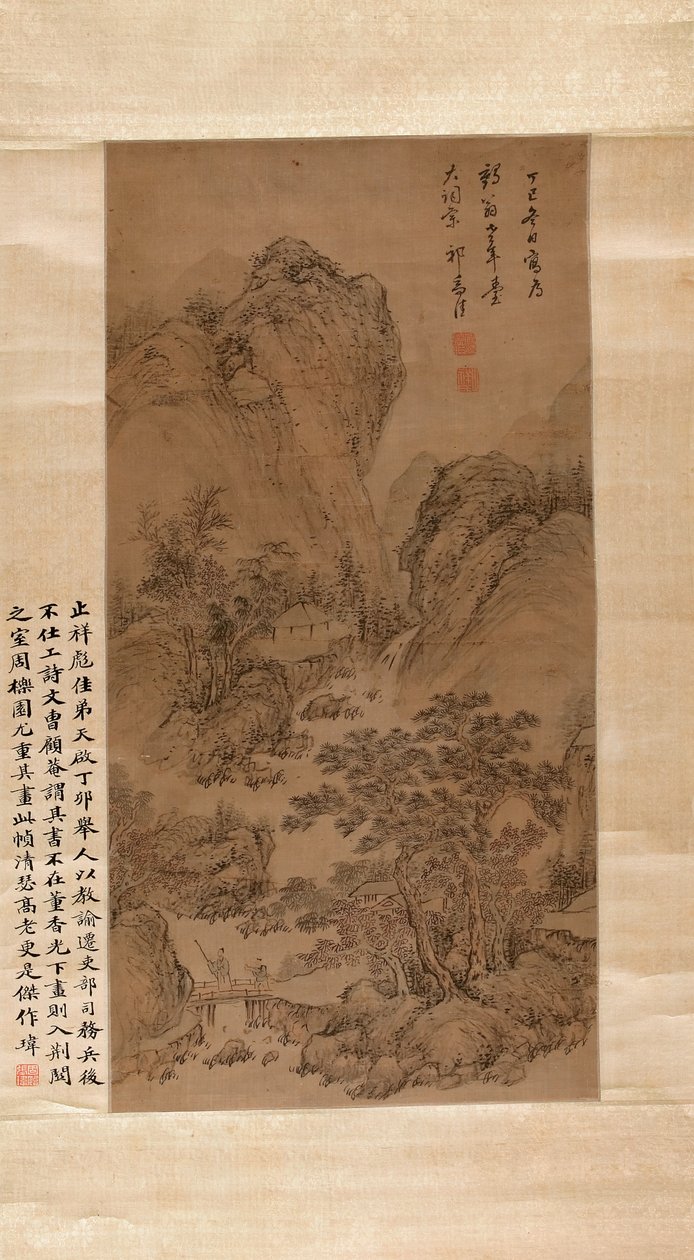 丁巳冬日寫為
翁老年臺
大詞宗 祁豸佳
止祥彪佳弟天啟丁卯舉人以教諭遷吏部司務兵後
不仕工詩文曹顧菴謂其書不在董香光下畫則入荆關
之室周櫟園尤重其畫此幀清瑟高老更是傑作瑋